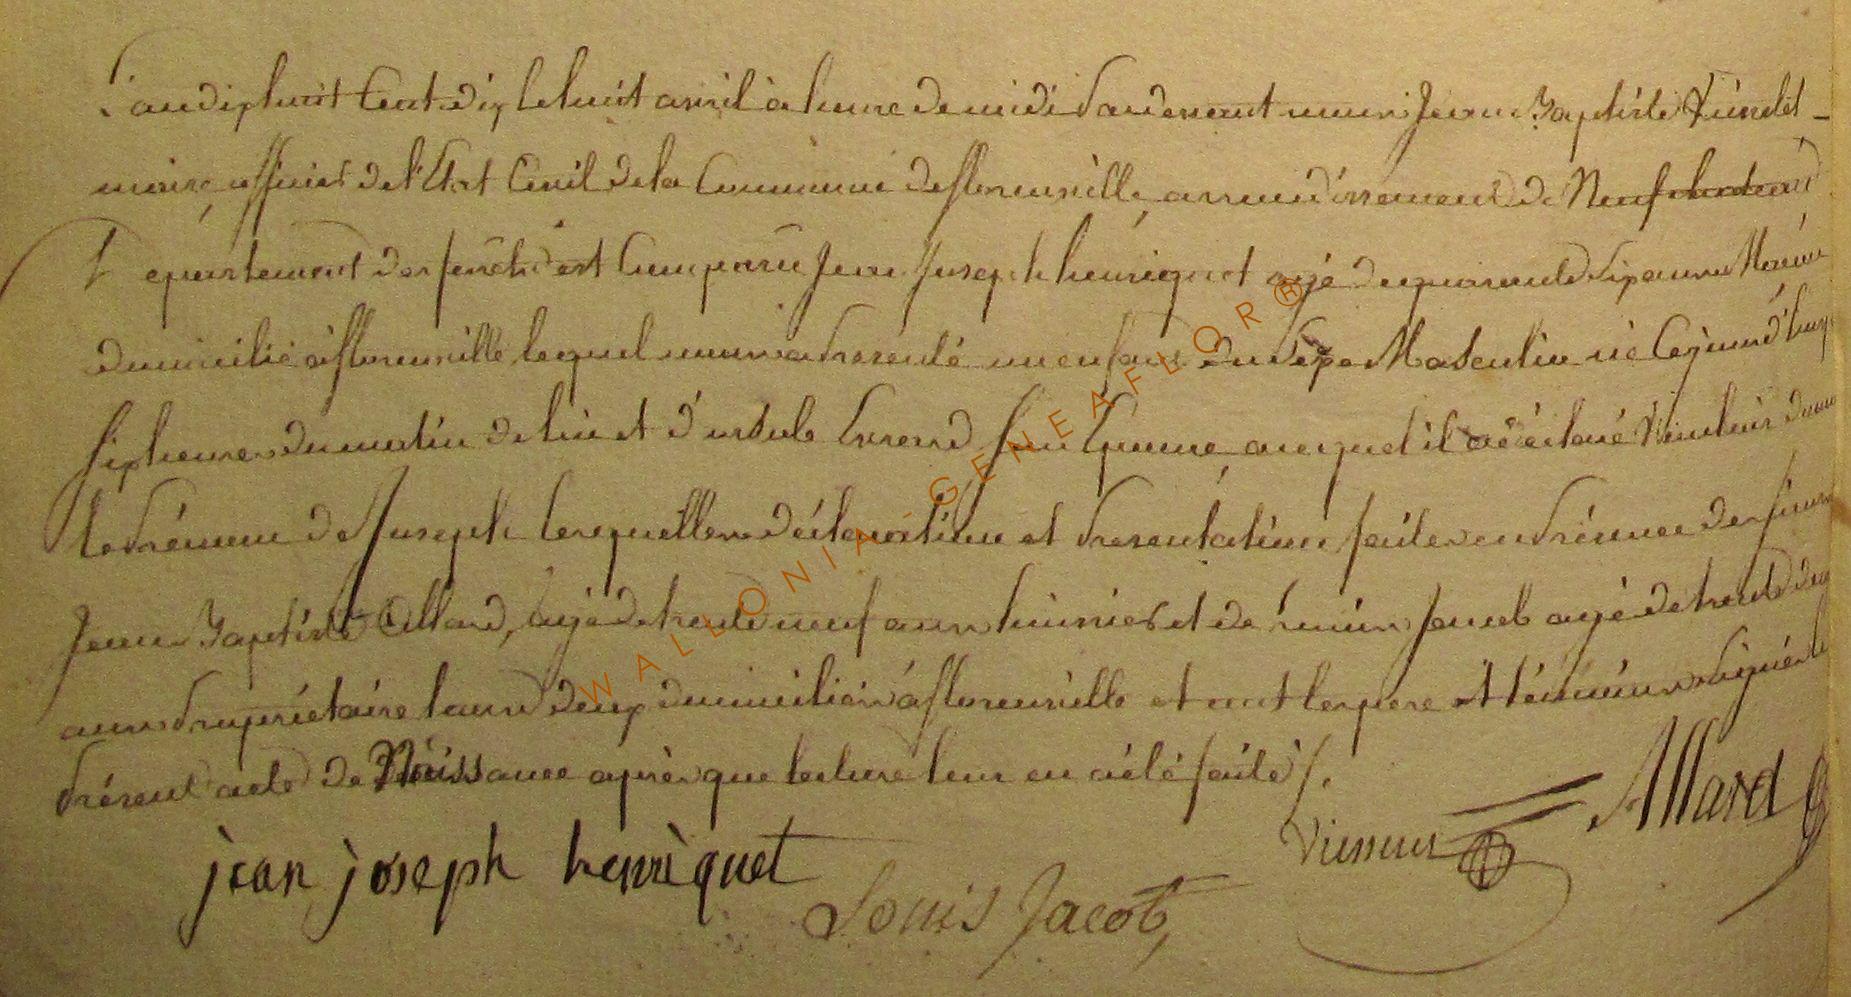 L'an dix huit Cent dix le huit avril à heure de midi Pardevant nous Jean Baptiste
maire officier de l'Etat Civil de la Commune de florenville, arrondissement de Neufchateau
Departement des forêts est Comparu Jean Joseph henriquet agé de quarante six ans
domicilié à florenville lequel nous a presenté un enfant du Sexe Masculin né Cejourd'huy
six heures du matin de lui et d'ursule son Epouse, auquel il a déclaré Vouloir donner
le prénom de Joseph lesquelles déclaration et presentation faites en présence des sieurs
Jean Baptiste Allard, agé de trente neuf ans et de Jacob agé de trente deux
ans propriétaire tous deux domiciliés à florenville et ont les pere et témoins signés le
présent acte de Naissance après que lecture leur en a été faite /.
jean joseph henriquet
Louis Jacob
Allard
WALLONIA-GENEAFLOR®